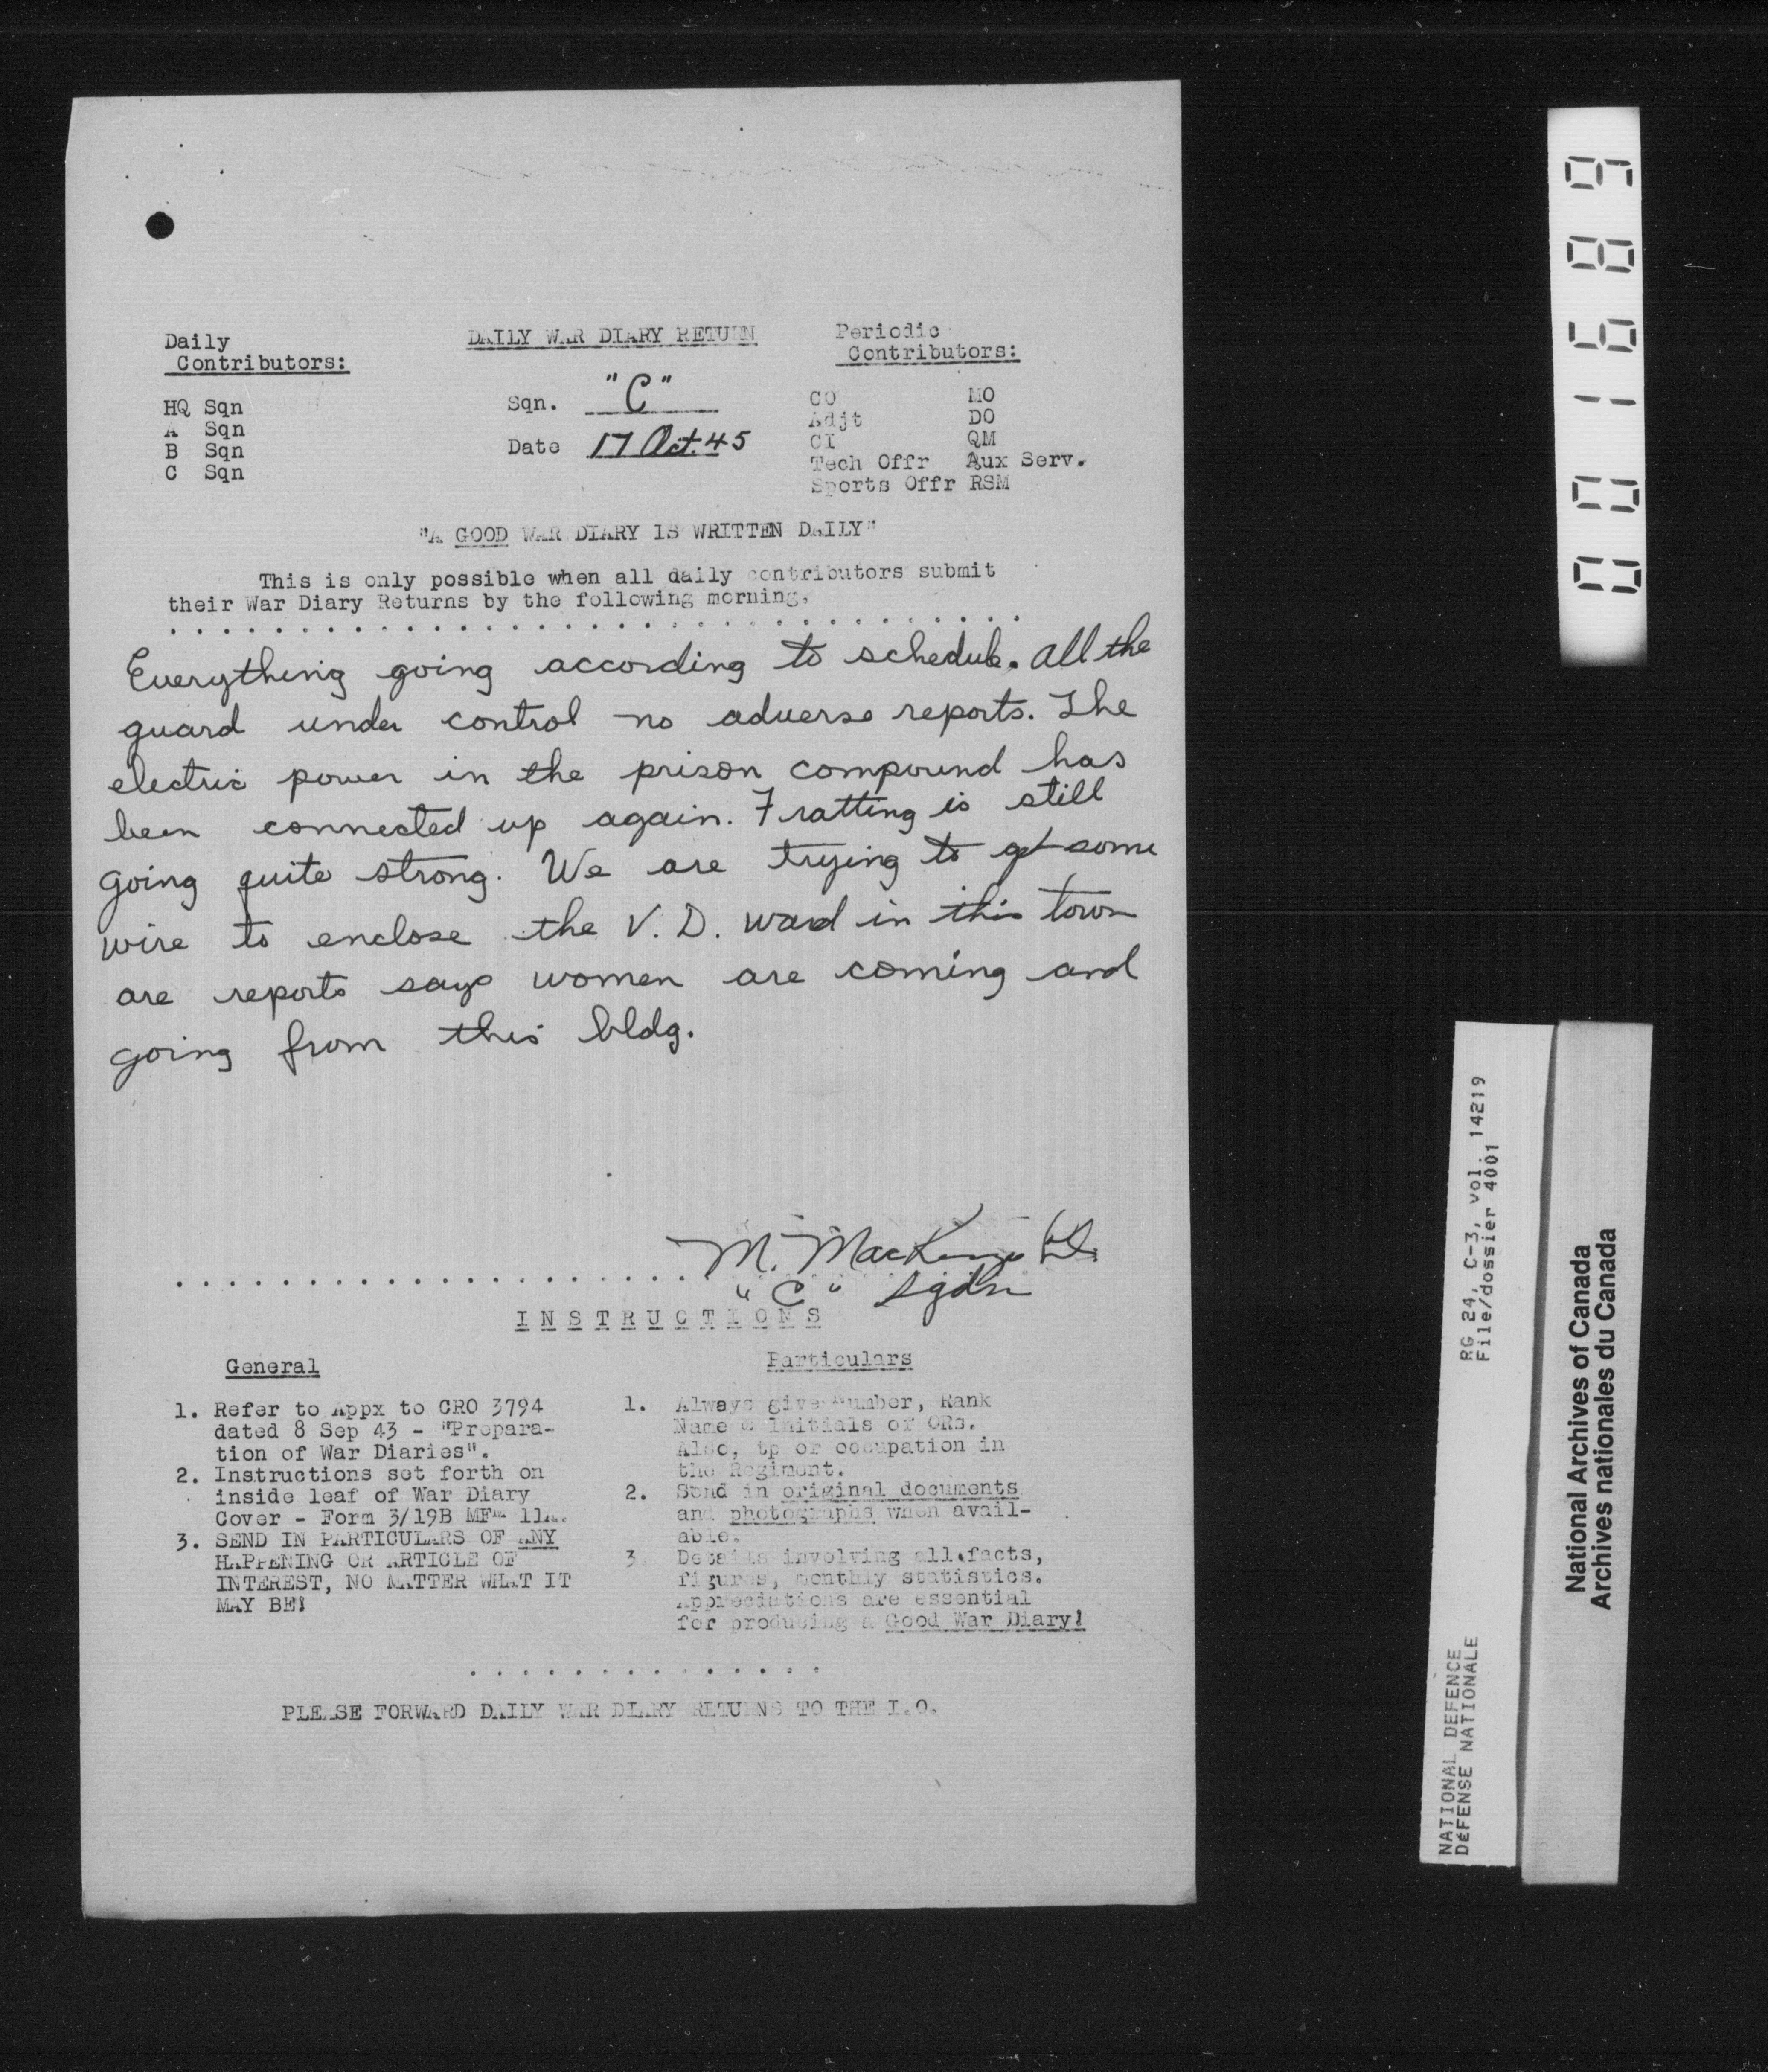 Daily
Contributors:
HQ Sqn
A Sqn
B Sqn
C Sqn
DAILY WAR DIARY RETURN
Sqn. "C"
Date 17 Oct. 45
Periodic
Contributors:
CO MO
Adjt DO
CI QM
Tech Offr Aux Serv.
Sports Offr RSM
"A GOOD WAR DIARY IS WRITTEN DAILY"
This is only possible when all daily contributors submit
their War Diary Returns by the following morning.
Everything going according to schedule. All the
guard under control no adverse reports. The
electric power in the prison compound has
been connected up again. Fratting is still
going quite strong. We are trying to get some
wire to enclose the V.D. ward in this town
are reports says women are coming and
going from this bldg.
M. MacKenzie
"C" Sqdn
INSTRUCTIONS
General
1. Refer to Appx to CRO 3794
dated 8 Sep 43 - "Prepara-
tion of War Diaries".
2. Instructions set forth on
inside leaf of War Diary
Cover - Form 3/19B MFM 11A.
3. SEND IN PARTICULARS OF ANY
HAPPENING OR ARTICLE OF
INTEREST, NO MATTER WHAT IT
MAY BE!
Particulars
1. Always give Number, Rank
Name & Initials of ORs.
Also, tp or occupation in
the Regiment.
2. Send in original documents
and photographs when avail-
able.
3. Details involving all facts,
figures, monthly statistics.
Appreciations are essential
for producing a Good War Diary!
PLEASE FORWARD DAILY WAR DIARY RETURNS TO THE I.O.
001689
RG 24, C-3, vol. 14219
File/dossier 4001
NATIONAL DEFENCE
DÉFENSE NATIONALE
National Archives of Canada
Archives nationales du Canada